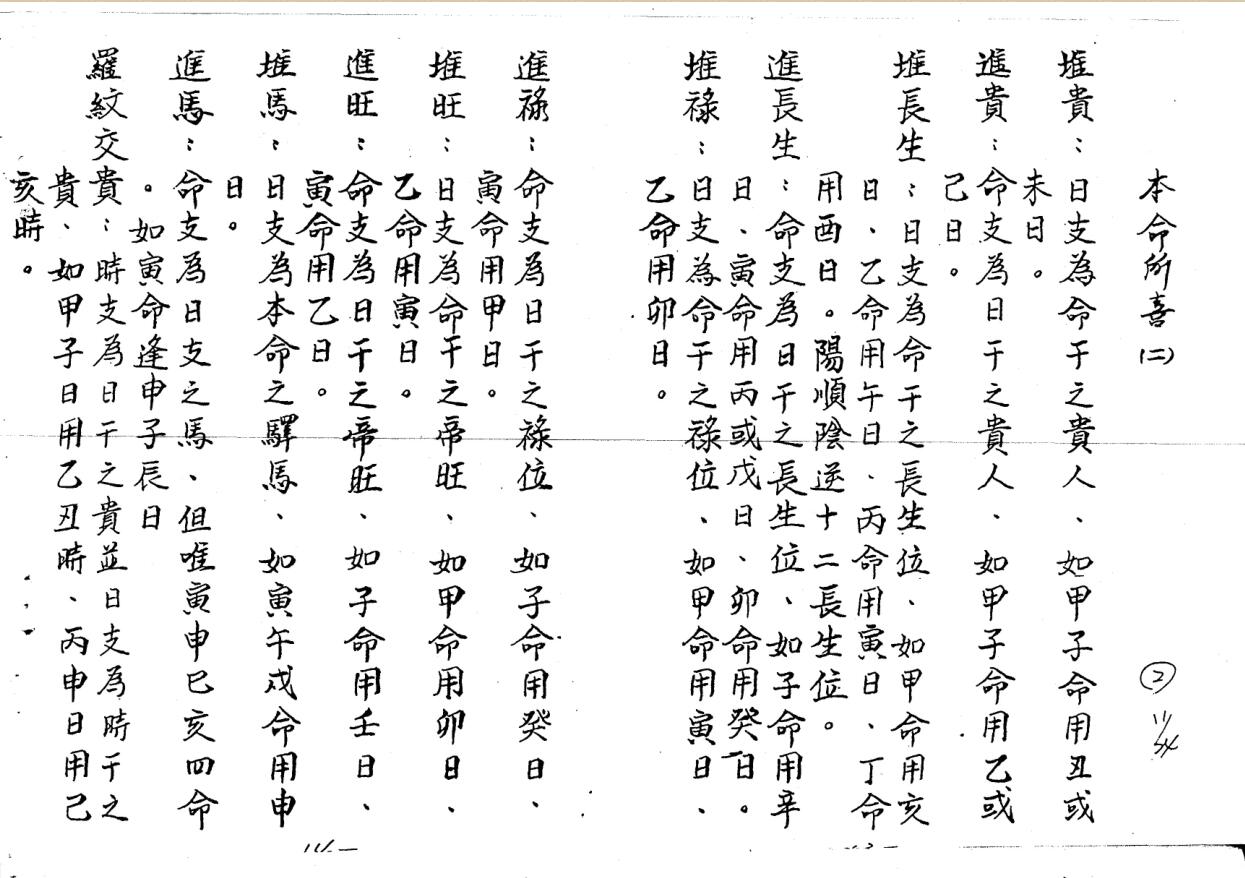 本命所喜㈡
② 11/54
堆貴：日支為命干之貴人、如甲子命用丑或
未日。
進貴：命支為日干之貴人、如甲子命用乙或
己日。
堆長生：日支為命干之長生位、如甲命用亥
日、乙命用午日、丙命用寅日、丁命
用酉日。陽順陰逆十二長生位。
進長生：命支為日干之長生位、如子命用辛
日、寅命用丙或戊日、卯命用癸日。
堆祿：日支為命干之祿位、如甲命用寅日、
乙命用卯日。
進祿：命支為日干之祿位、如子命用癸日、
寅命用甲日。
堆旺：日支為命干之帝旺、如甲命用卯日、
乙命用寅日。
進旺：命支為日干之帝旺、如子命用壬日、
寅命用乙日。
堆馬：日支為本命之驛馬、如寅午戌命用申
日。
進馬：命支為日支之馬、但唯寅申巳亥四命
。如寅命逢申子辰日
羅紋交貴：時支為日干之貴並日支為時干之
貴、如甲子日用乙丑時、丙申日用己
亥時。